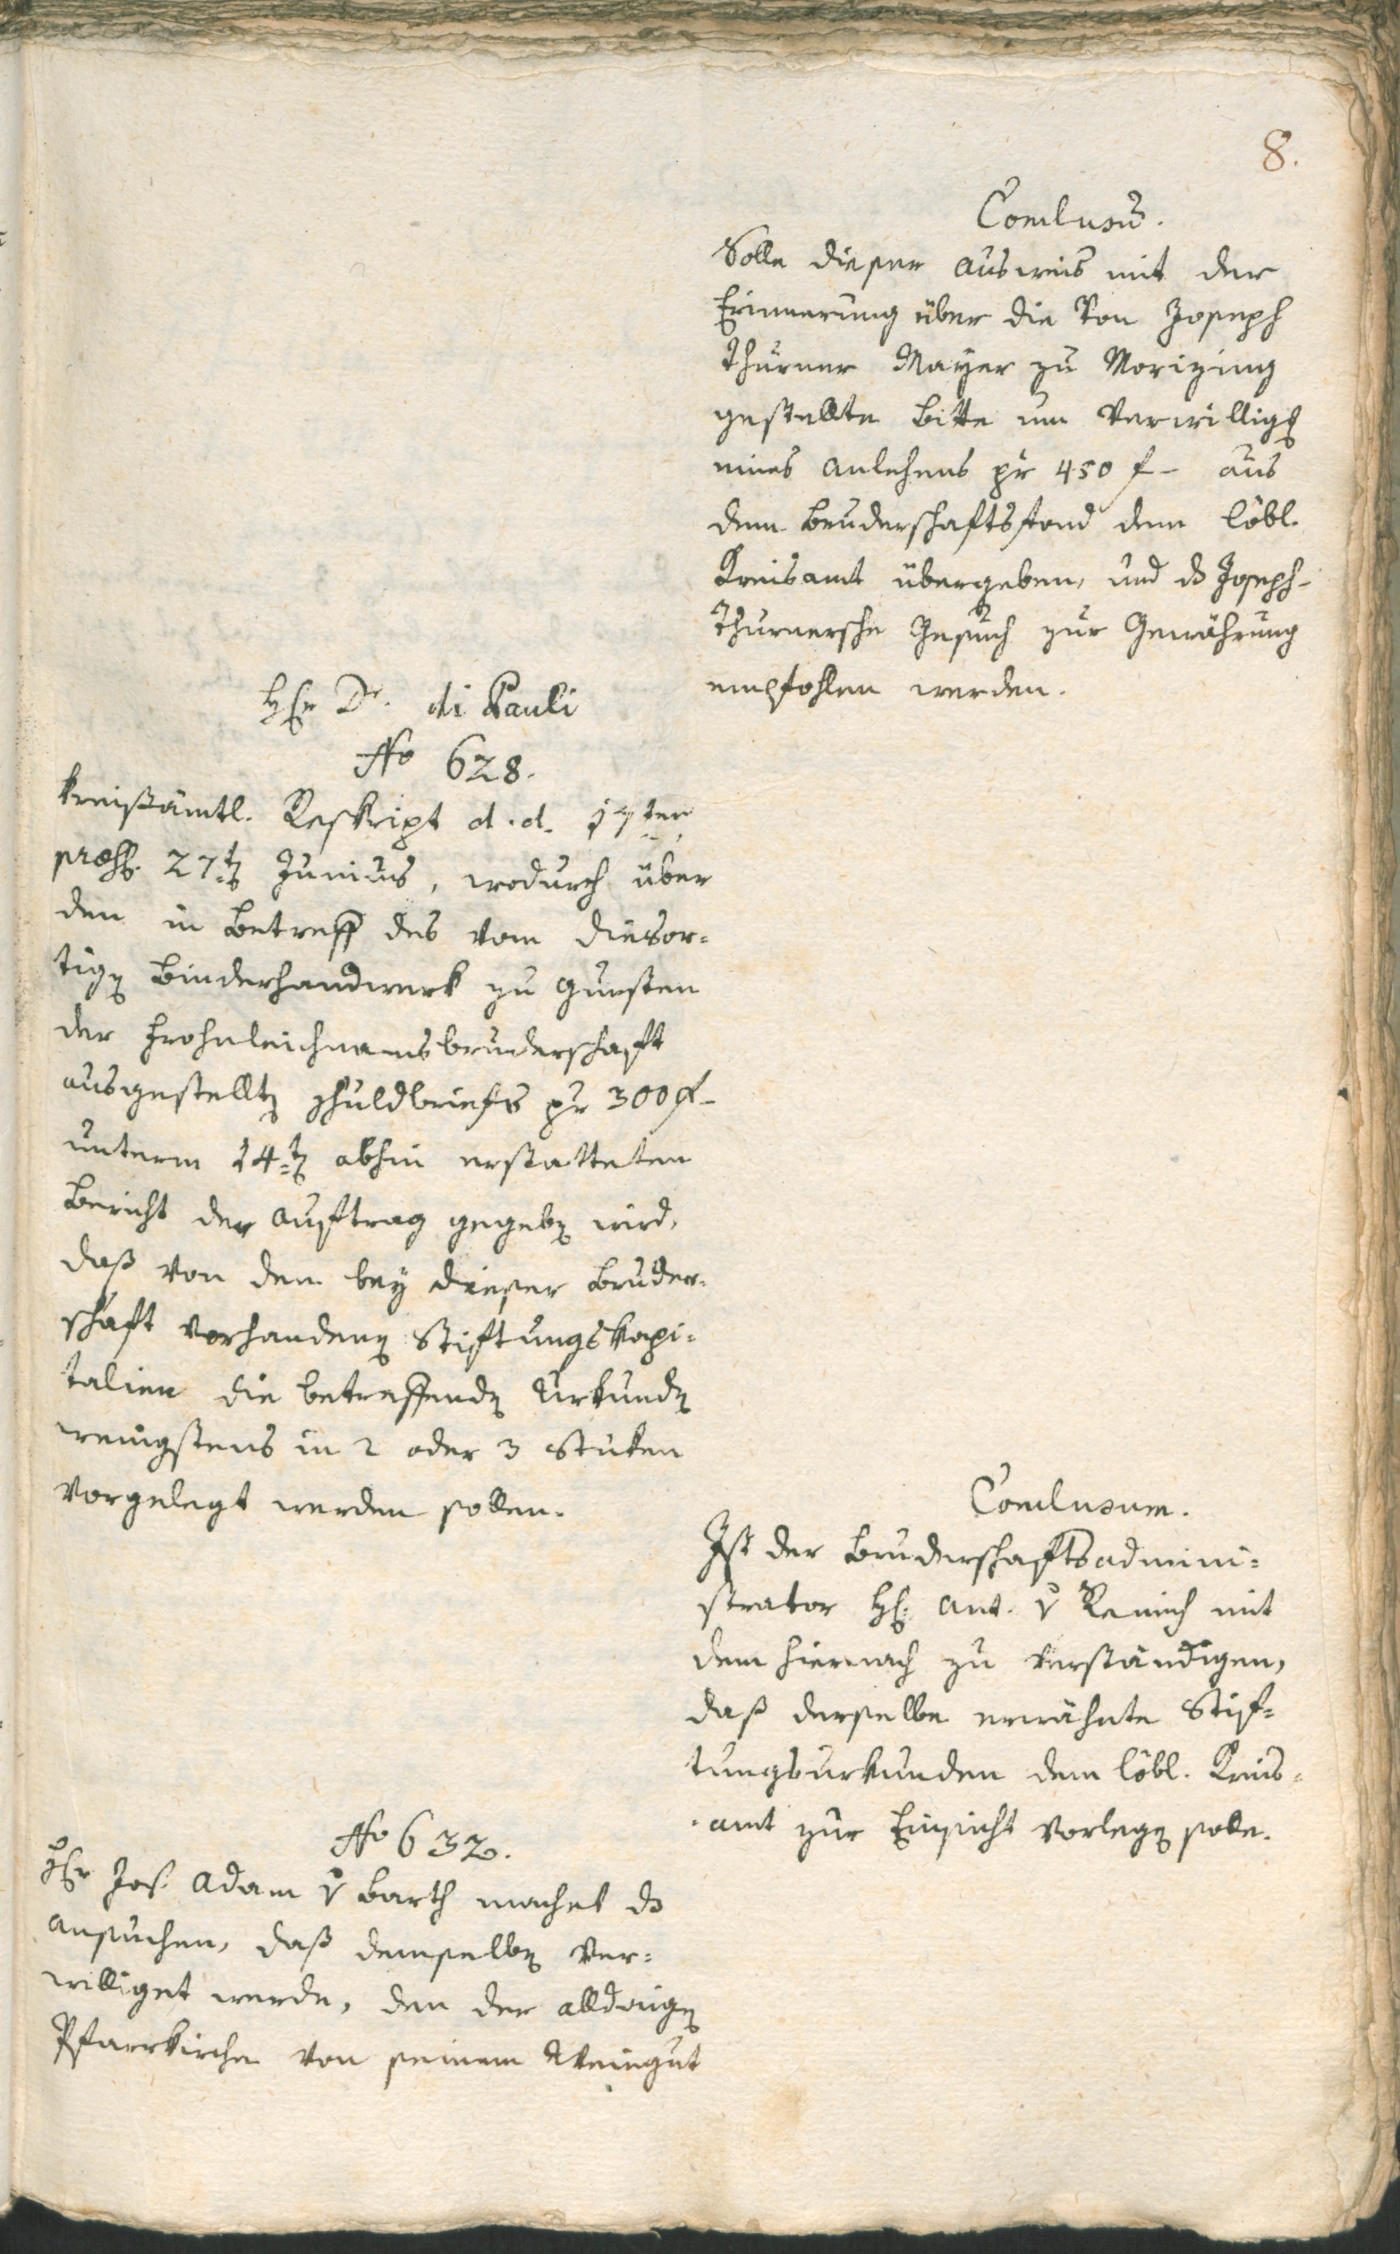 8.
Conclusũ.
Solle dieser Ausweis mit der
Erinnerung über die von Joseph
Thurner Mayer zu Morizing
gestellte Bitte um Verwilligg
eines Anlehens pr 450 f- aus
dem Bruderschaftsfond dem löbl.
Kreisamt übergeben, und ds Joseph-
Thurnersche Gesuch zur Gewährung
empfohlen werden.
Hr Dr. di Pauli
No 628.
Kreißämtl. Reskript d. d. 17ten
præs. 27t Junius, wodurch über
den in Betreff des vom diesor=
tigen Binderhandwerk zu Gunsten
der Frohnleichnamsbruderschaft
ausgestellten Schuldbriefs pr 300 f-
unterm 14t abhin erstatteten
Bericht der Auftrag gegeben wird,
daß von den bey dieser Bruder=
schaft vorhandenen Stiftungskapi=
talien die betreffenden Urkunden
wenigstens in 2 oder 3 Stüken
vorgelegt werden sollen.
Conclusum.
Ist der Bruderschaftsadmini=
strator H: Ant. v Remich mit
dem hiernach zu verständigen,
daß derselbe erwähnte Stif=
tungsurkunden dem löbl. Kreis=
amt zur Einsicht vorlegen solle.
No 632.
Hr Jos. Adam v Barth machet ds
Ansuchen, daß demselben ver=
williget werde, den der alldortigen
Pfarrkirche von seinem Weingut